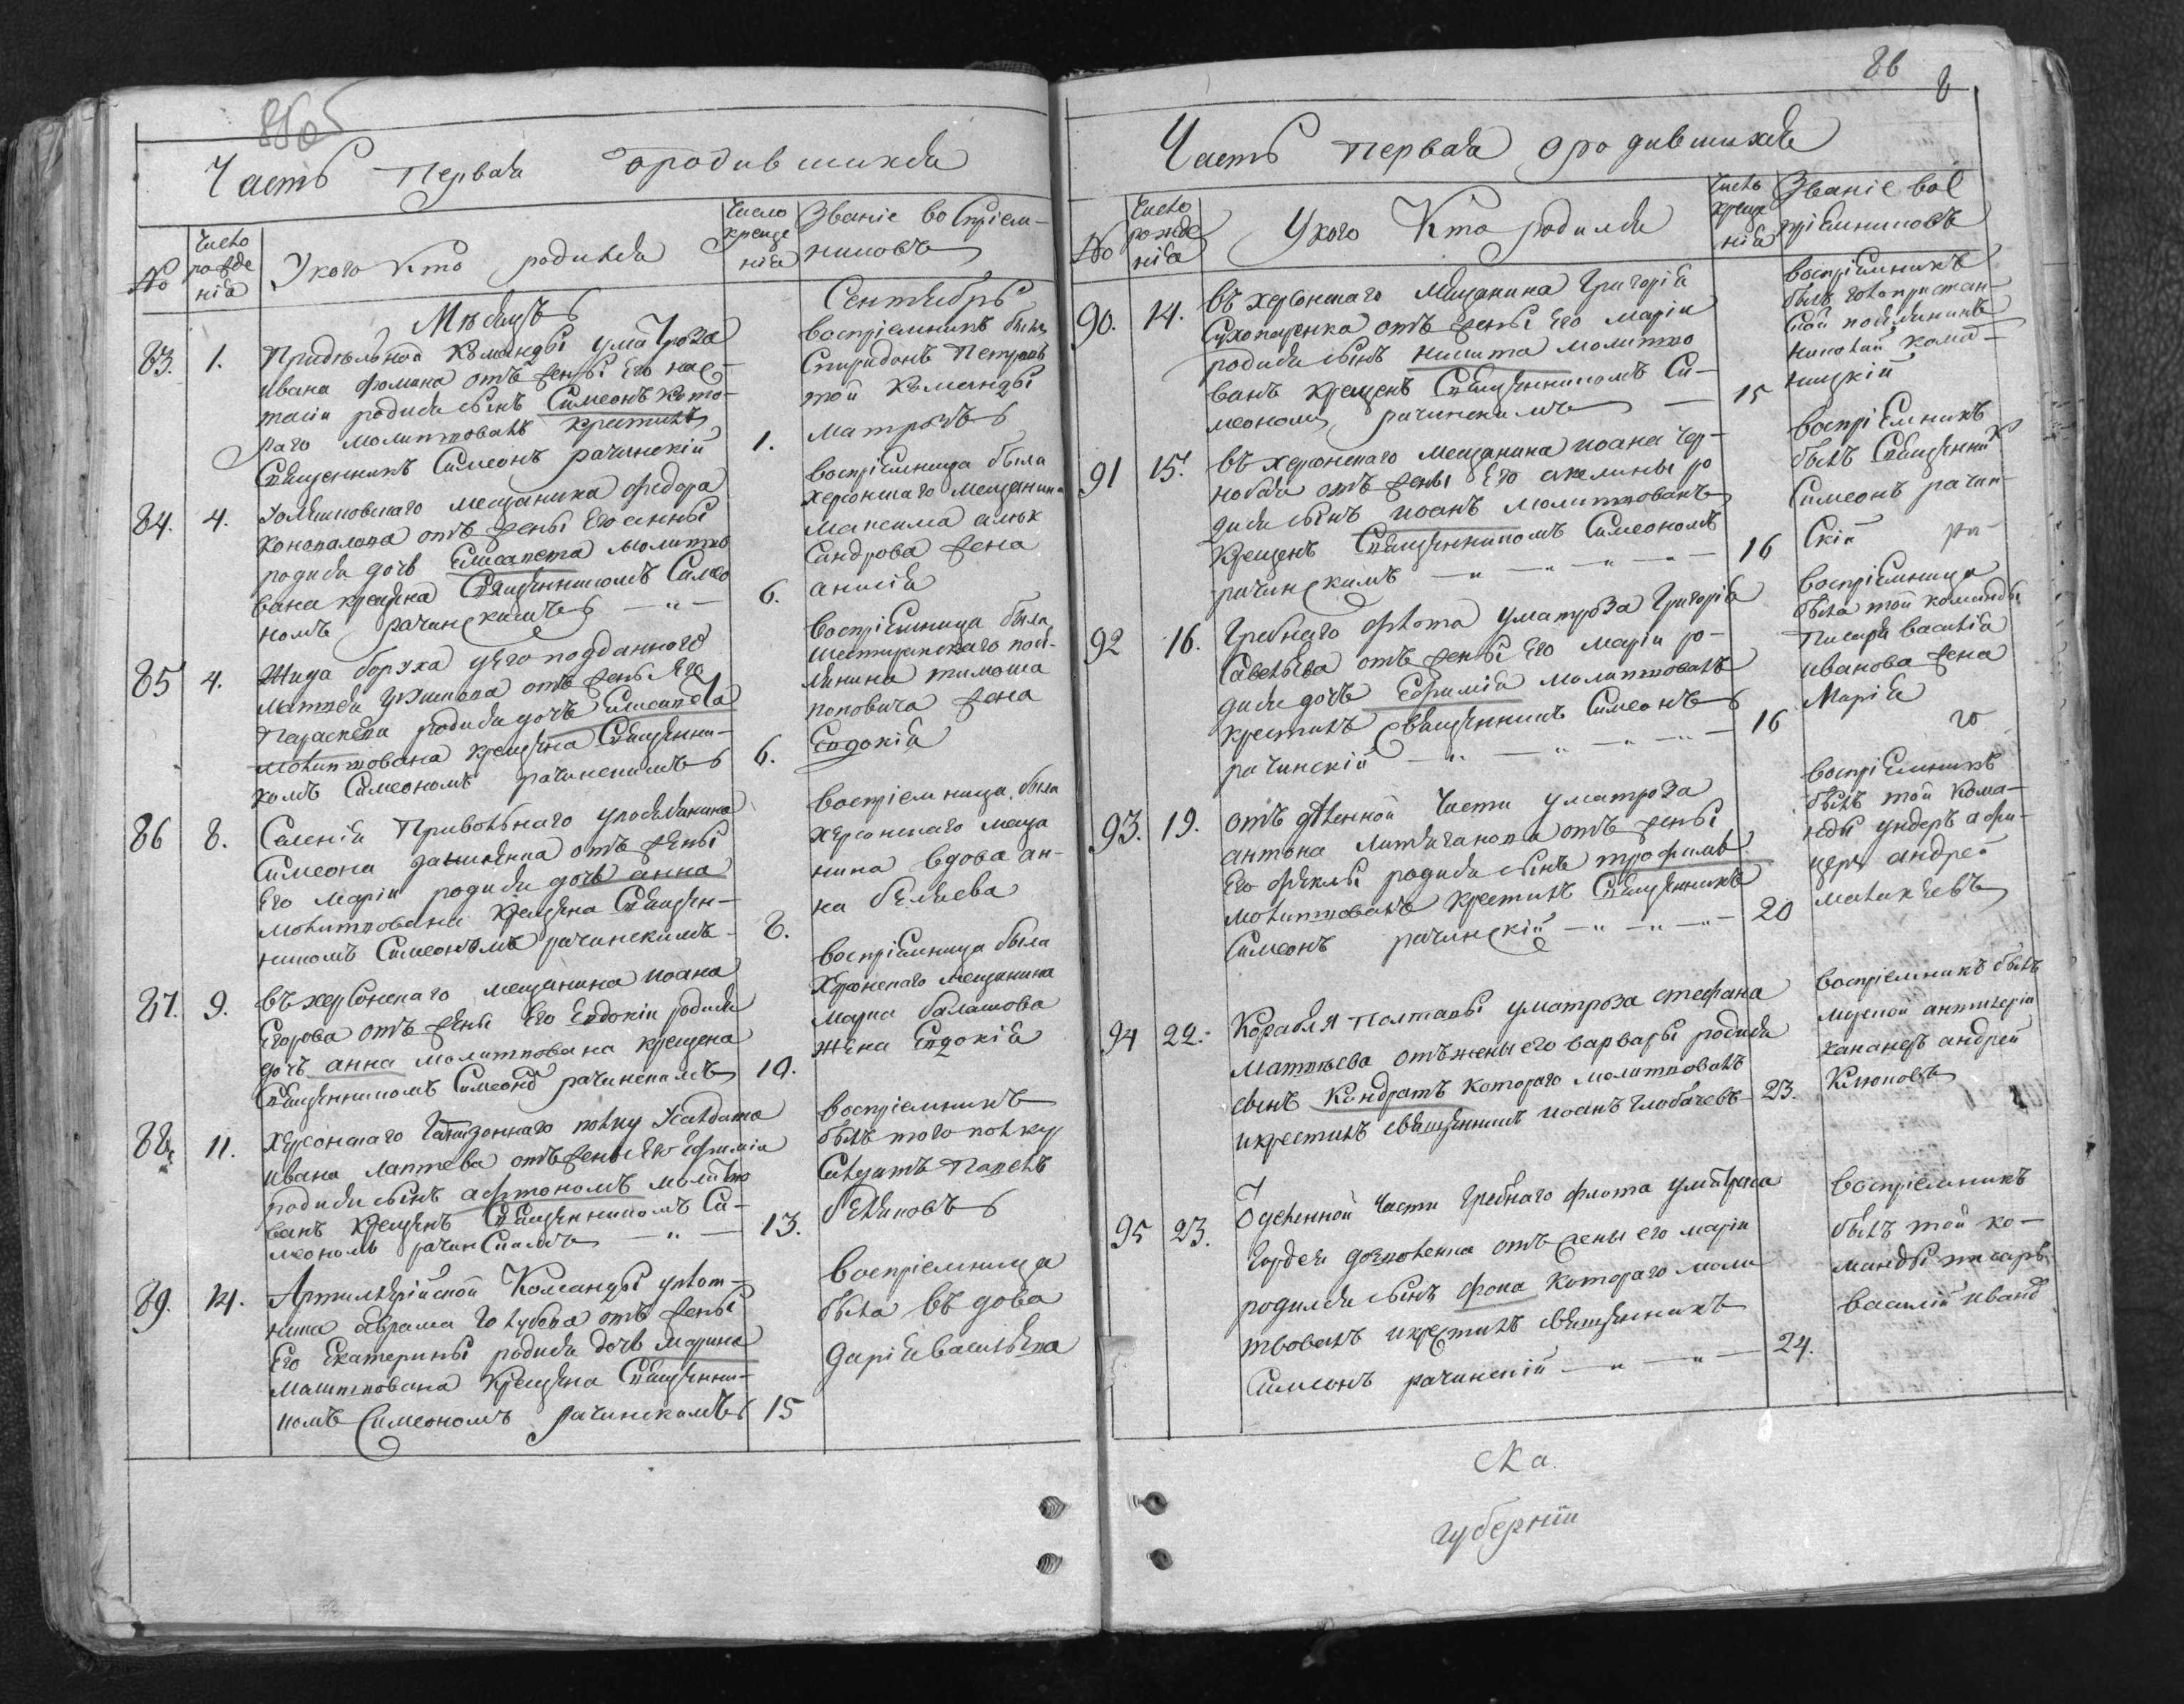 Часть первая о родившихся
№
Число рожде нія
У кого Кто родился
Число креще нія
Званіе воспріем-
никовъ
Мѣсяцъ
Сентябрь
83.
1.
Ивана Фомина отъ жены Его нас-
тасіи родился сынъ Симеонъ кото-
раго молитвовалъ крестилъ
Священникъ Симеонъ рачинскій
1.
воспріемникъ былъ
Спиридонъ Петровъ
той Команды
матрозъ
84.
4.
мещанина Федора
Коновалова отъ жены Его анны
родися дочь Елисавета молитво
вана крещена Священникомъ Симео
номъ рачинскимъ — „ —
6.
воспріемница была
херсонскаго мещанина
Максима алек
сандрова жена
анисія
85
4.
Жида боруха у его подданного
Матвея отъ жены Его
Параскевы родися дочь Елисавета
молитвована крещена Священни-
комъ Симеономъ рачинскимъ
6.
воспріемница была
посе-
лянина тимоша
поповича жена
Евдокія
86
8.
Селенія Привольнаго у поселянина
Симеона отъ жены
Его Маріи родися дочь анна
молитвована крещена Священ-
никомъ Симеономъ рачинскимъ
8.
воспріемница была
херсонскаго меща
нина вдова ан-
на беляева
87.
9.
въ херсонскаго мещанина иоана
Егорова отъ жены Его Евдокіи родися
дочь анна молитвована крещена
Священникомъ рачинскимъ
10.
воспріемница была
Херсонскаго мещанина
Марка балашова
жена Евдокія
88.
11.
Херсонскаго Гарнизоннаго полку У салдата
Ивана Лаптева отъ жены Его Ефиміи
родися сынъ афтономъ молитво
ванъ крещенъ Священникомъ Си-
меономъ рачинскимъ — „ —
13.
воспріемникъ
былъ того полку
Салдатъ Павелъ
беляковъ
89.
14.
Артилерійской Команды у плот-
ника аврама Голубова отъ жены
Его Екатерины родися дочь Марина
молитвована крещена Священни-
комъ Симеономъ рачинскимъ
15
воспріемница
была вдова
Дарія васильева
86
Часть первая о родившихся
№
Число рожде нія
У кого Кто родился
Число креще нія
Званіе вос
пріемниковъ
90.
14.
въ херсонскаго мещанина Григорія
отъ жены Его маріи
родися сынъ никита молитво
ванъ крещенъ Священникомъ Си-
меономъ рачинскимъ —
15
воспріемникъ
былъ голопристан-
ской поселянинъ
91
15.
въ херсонскаго мещанина иоана чер-
нобая отъ жены Его акелины ро
дися сынъ иоанъ молитвованъ
крещенъ Священникомъ Симеономъ
рачинскимъ — „ — „ — „ —
16
воспріемникъ
былъ Священник
Симеонъ рачин-
скій
92
16.
Гребнаго флота у матроза Григорія
Савельева отъ жены Его Маріи ро-
дися дочь Ефимія молитвовалъ
крестилъ Священникъ Симеонъ
рачинскій — „ — „ — „ — „ —
16
воспріемница
была той команды
Писаря василія
иванова жена
Марія
го
93.
19.
отъ дѣленной части у матроза
антона отъ жены
Его феклы родися сынъ трофимъ
молитвовалъ крестилъ Священникъ
Симеонъ рачинскій — „ — „ — „ —
20
воспріемникъ
былъ той кома-
нды ундеръ офи-
церъ андрей
94
22.
Корабля Полтавы у матроза стефана
Матвѣева отъ жены его варвары родися
сынъ Кондратъ котораго молитвовалъ
и крестилъ священникъ иоанъ Глобачевъ
23.
воспріемникъ былъ
морской антилеріи
кананеръ андрей
Клюковъ
95
23.
Одѣленной части Гребнаго флота у матроза
Гордея отъ жены его маріи
родился сынъ фока котораго моли
твовалъ и крестилъ священникъ
Симеонъ рачинскій — „ — „ —
24.
воспріемникъ
былъ той ко-
манды писарь
василій иванов
ска
губерніи